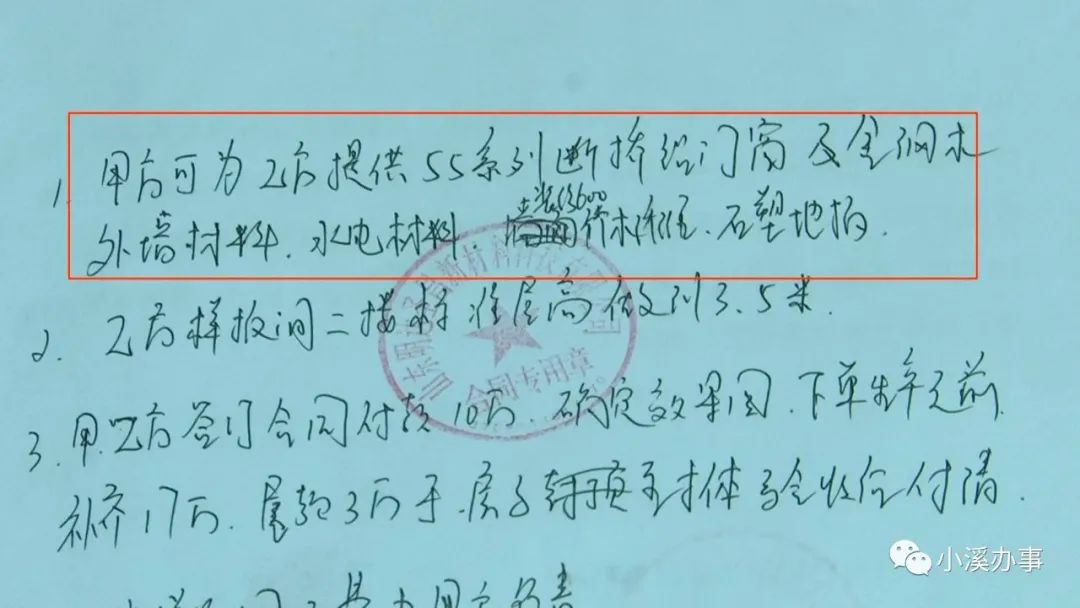 1. 甲方可为乙方提供55系列断桥铝门窗及金刚木
外墙材料.水电材料 石塑地板.
2. 乙方样板间二楼标准层高做到3.5米.
3. 甲.乙方签订合同付款10万.确定效果图.下单生产之前.
补齐17万.尾款3万于.房子封顶主体验收后付清.
合同专用章
小溪办事